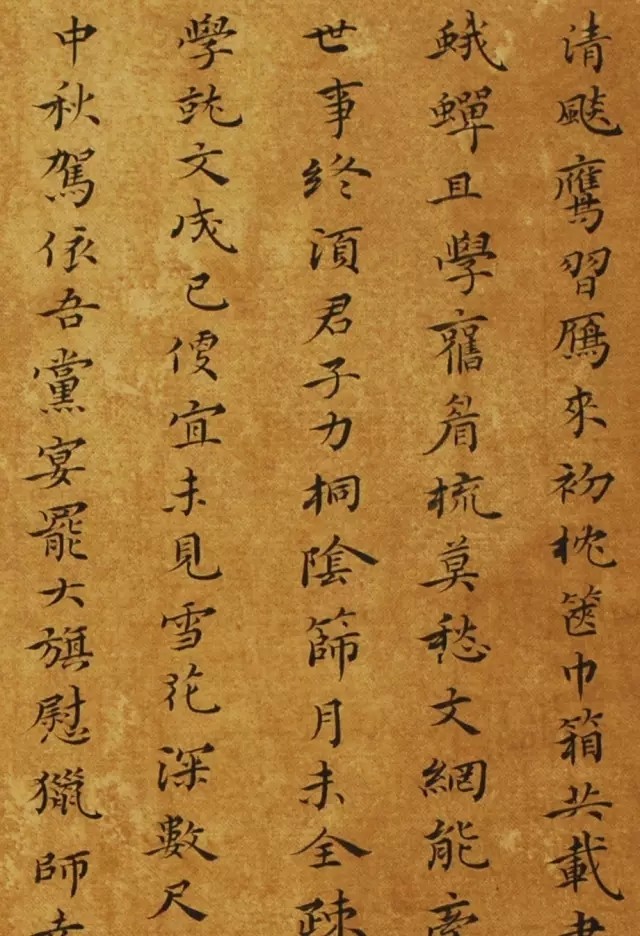 清飈鷹習鴈來初枕篋巾箱共載書
蛾蟬且學舊眉梳莫愁文網能
世事終須君子力桐陰篩月未全疎
學就文成已便宜未見雪花深數尺
中秋駕依吾黨宴罷大旗慰獵師